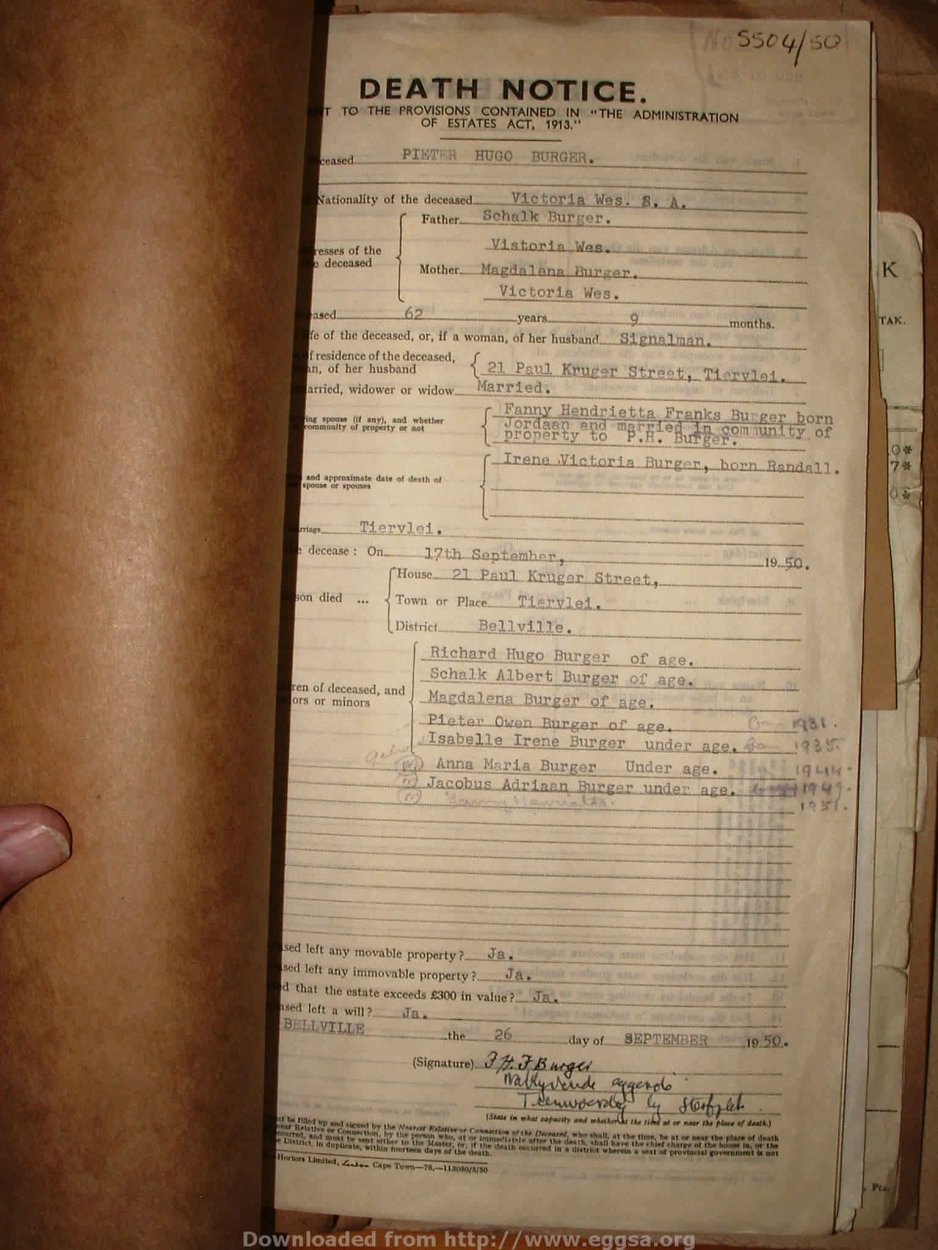 No 5504/50
DEATH NOTICE.
NT TO THE PROVISIONS CONTAINED IN "THE ADMINISTRATION
OF ESTATES ACT, 1913."
ceased PIETER HUGO BURGER.
Nationality of the deceased Victoria Wes. S. A.
Father Schalk Burger.
resses of the Vistoria Wes.
e deceased
Mother Magdalena Burger.
Victoria Wes.
K
TAK.
ased 62 years 9 months.
ife of the deceased, or, if a woman, of her husband Signalman.
of residence of the deceased,
an, of her husband 21 Paul Kruger Street, Tiervlei.
arried, widower or widow Married.
ving spouse (if any), and whether Fanny Hendrietta Franks Burger born
community of property or not Jordaan and married in community of
property to P.H. Burger.
Irene Victoria Burger, born Randall.
and approximate date of death of
spouse or spouses
arriage Tiervlei.
e decease: On 17th September, 19 50.
House 21 Paul Kruger Street,
son died ... Town or Place Tiervlei.
District Bellville.
Richard Hugo Burger of age.
Schalk Albert Burger of age.
ren of deceased, and
ors or minors Magdalena Burger of age.
Pieter Owen Burger of age. 1931.
Isabelle Irene Burger under age. 1935.
Anna Maria Burger Under age. 1944.
Jacobus Adriaan Burger under age. 1949.
1951.
sed left any movable property? Ja.
sed left any immovable property? Ja.
d that the estate exceeds £300 in value? Ja.
ased left a will? Ja.
BELLVILLE the 26 day of SEPTEMBER 19 50.
(Signature) F.H.F Burger
Nablywende eggenote
Teenwoordig by Sterfplek.
(State in what capacity and whether at the time at or near the place of death.)
st be filled up and signed by the Nearest Relative or Connection of the Deceased, who shall, at the time, be at or near the place of death
ear Relative or Connection, by the person who, at or immediately after the death, shall have the chief charge of the house in, or the
ccurred, and must be sent either to the Master, or, if the death occurred in a district wherein a seat of provincial government is not
e District, in duplicate, within fourteen days of the death.
Hortors Limited, Cape Town—76,—113050/5/50
Downloaded from http://www.eggsa.org